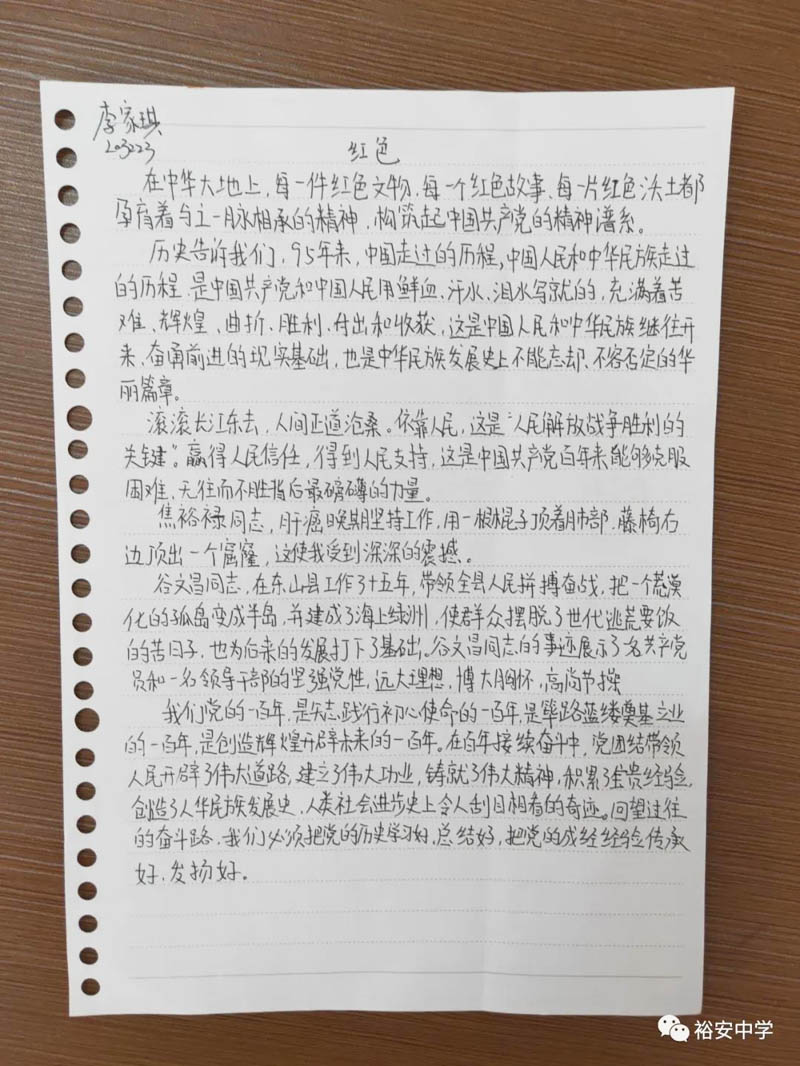 李家琪
203223
红色
在中华大地上,每一件红色文物、每一个红色故事、每一片红色沃土都
孕育着与之一脉相承的精神,构筑起中国共产党的精神谱系。
历史告诉我们,95年来,中国走过的历程,中国人民和中华民族走过
的历程,是中国共产党和中国人民用鲜血、汗水、泪水写就的,充满着苦
难、辉煌、曲折、胜利、付出和收获,这是中国人民和中华民族继往开
来、奋勇前进的现实基础,也是中华民族发展史上不能忘却、不容否定的华
丽篇章。
滚滚长江东去,人间正道沧桑。依靠人民,这是“人民解放战争胜利的
关键”。赢得人民信任,得到人民支持,这是中国共产党百年来能够克服
困难、无往而不胜背后最磅礴的力量。
焦裕禄同志,肝癌晚期坚持工作,用一根棍子顶着肺部,藤椅右
边顶出一个窟窿,这使我受到深深的震撼。
谷文昌同志,在东山县工作了十五年,带领全县人民拼搏奋战,把一个荒漠
化的孤岛变成半岛,并建成了海上绿洲,使群众摆脱了世代逃荒要饭
的苦日子,也为后来的发展打下了基础。谷文昌同志的事迹展示了一名共产党
员和一名领导干部的坚强党性,远大理想,博大胸怀,高尚节操
我们党的一百年,是矢志践行初心使命的一百年,是筚路蓝缕奠基立业
的一百年,是创造辉煌开辟未来的一百年。在百年接续奋斗中,党团结带领
人民开辟了伟大道路,建立了伟大功业,铸就了伟大精神,积累了宝贵经验,
创造了人华民族发展史、人类社会进步史上令人刮目相看的奇迹。回望过往
的奋斗路,我们必须把党的历史学习好,总结好,把党的成经经验传承
好、发扬好。
裕安中学